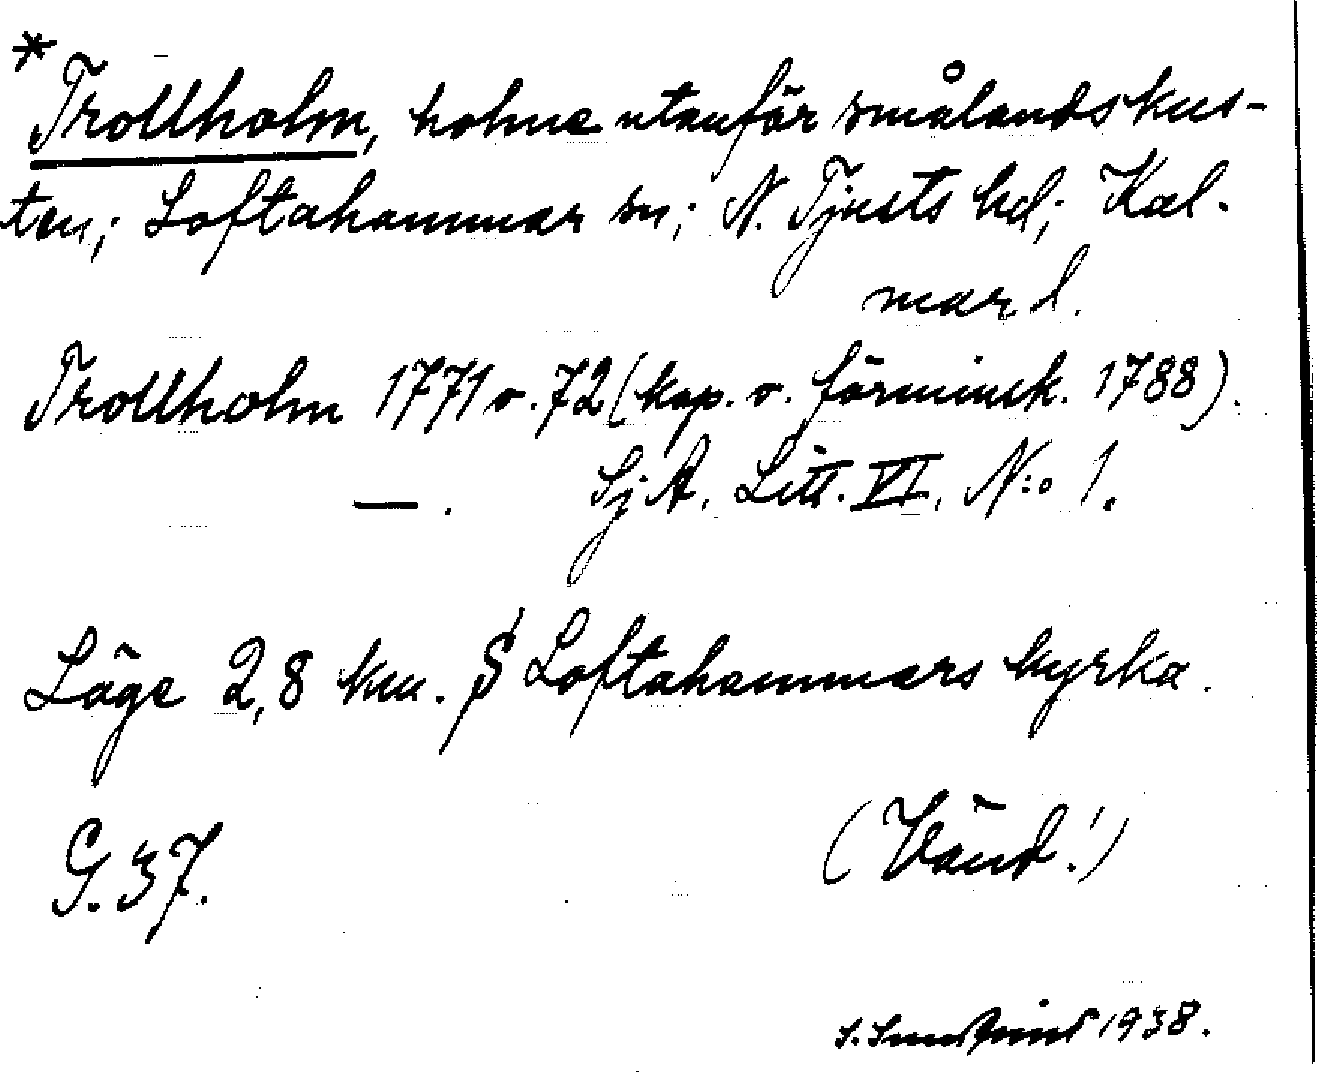 *Trollholm, holme utanför smålandskus-
ten; Loftahammar sn; N. Tjusts hd; Kal-
mar l.
Trollholm 1771 o. 72 (kop. o. förminsk. 1788).
— . SjA. Litt. VI. N:o 1.
Läge 2,8 km. S Loftahammars kyrka.
G. 37.
(Vänd!)
S. 1938.